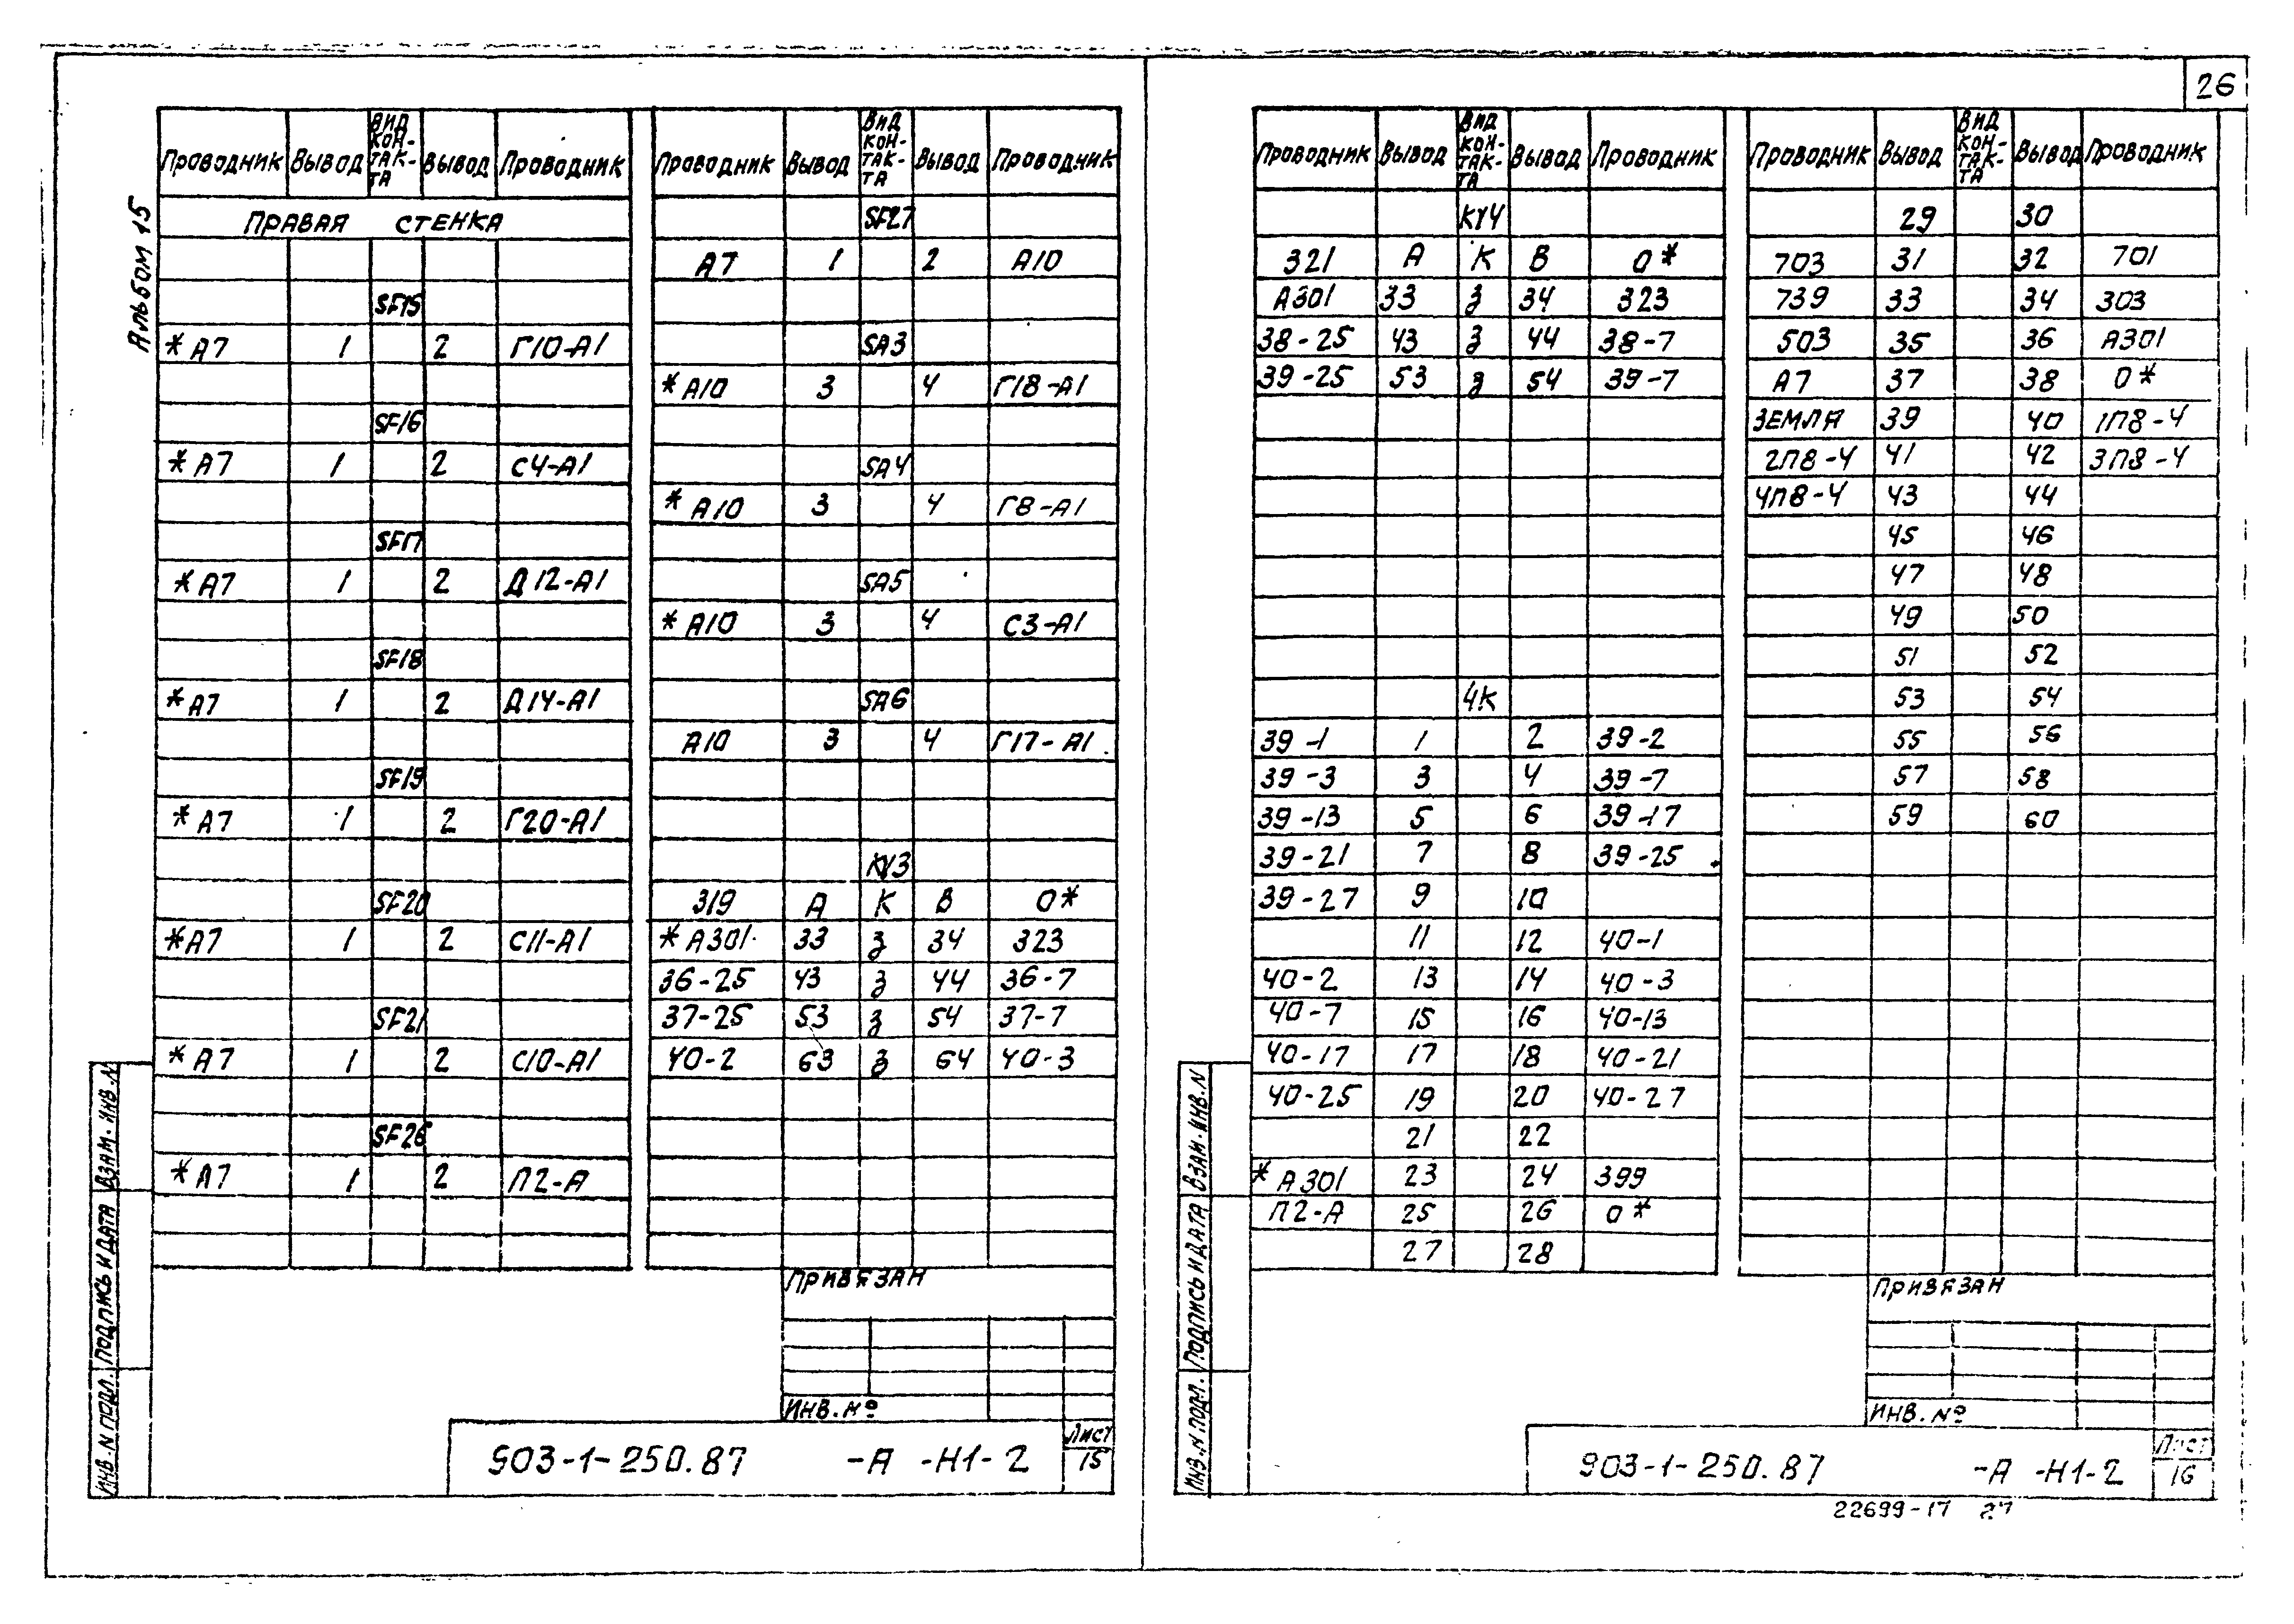 26
Альбом 15
Проводник Вывод Вид кон-так-та Вывод Проводник
ПРАВАЯ СТЕНКА
SF15
*А7 1 2 Г10-А1
SF16
*А7 1 2 С4-А1
SF17
*А7 1 2 Д12-А1
SF18
*А7 1 2 Д14-А1
SF19
*А7 1 2 Г20-А1
SF20
*А7 1 2 С11-А1
SF21
*А7 1 2 С10-А1
SF26
*А7 1 2 П2-А
Проводник Вывод Вид кон-так-та Вывод Проводник
SF27
А7 1 2 А10
SA3
*А10 3 4 Г18-А1
SA4
*А10 3 4 Г8-А1
SA5
*А10 3 4 С3-А1
SA6
А10 3 4 Г17-А1
КУ3
319 А К В 0*
*А301 33 З 34 323
36-25 43 З 44 36-7
37-25 53 З 54 37-7
40-2 63 З 64 40-3
ПРИВЯЗАН
ИНВ. №
903-1-250.87 -А -Н1-2
Лист
15
ИНВ. N ПОДЛ. ПОДПИСЬ И ДАТА ВЗАМ. ИНВ. N
Проводник Вывод Вид кон-так-та Вывод Проводник
КУ4
321 А К В 0*
А301 33 З 34 323
38-25 43 З 44 38-7
39-25 53 З 54 39-7
4К
39-1 1 2 39-2
39-3 3 4 39-7
39-13 5 6 39-17
39-21 7 8 39-25
39-27 9 10
11 12 40-1
40-2 13 14 40-3
40-7 15 16 40-13
40-17 17 18 40-21
40-25 19 20 40-27
21 22
*А301 23 24 399
П2-А 25 26 0*
27 28
Проводник Вывод Вид кон-так-та Вывод Проводник
29 30
703 31 32 701
739 33 34 303
503 35 36 А301
А7 37 38 0*
ЗЕМЛЯ 39 40 1П8-4
2П8-4 41 42 3П8-4
4П8-4 43 44
45 46
47 48
49 50
51 52
53 54
55 56
57 58
59 60
ПРИВЯЗАН
ИНВ. №
903-1-250.87 -А -Н1-2
Лист
16
ИНВ. N ПОДЛ. ПОДПИСЬ И ДАТА ВЗАМ. ИНВ. N
22699-17 27